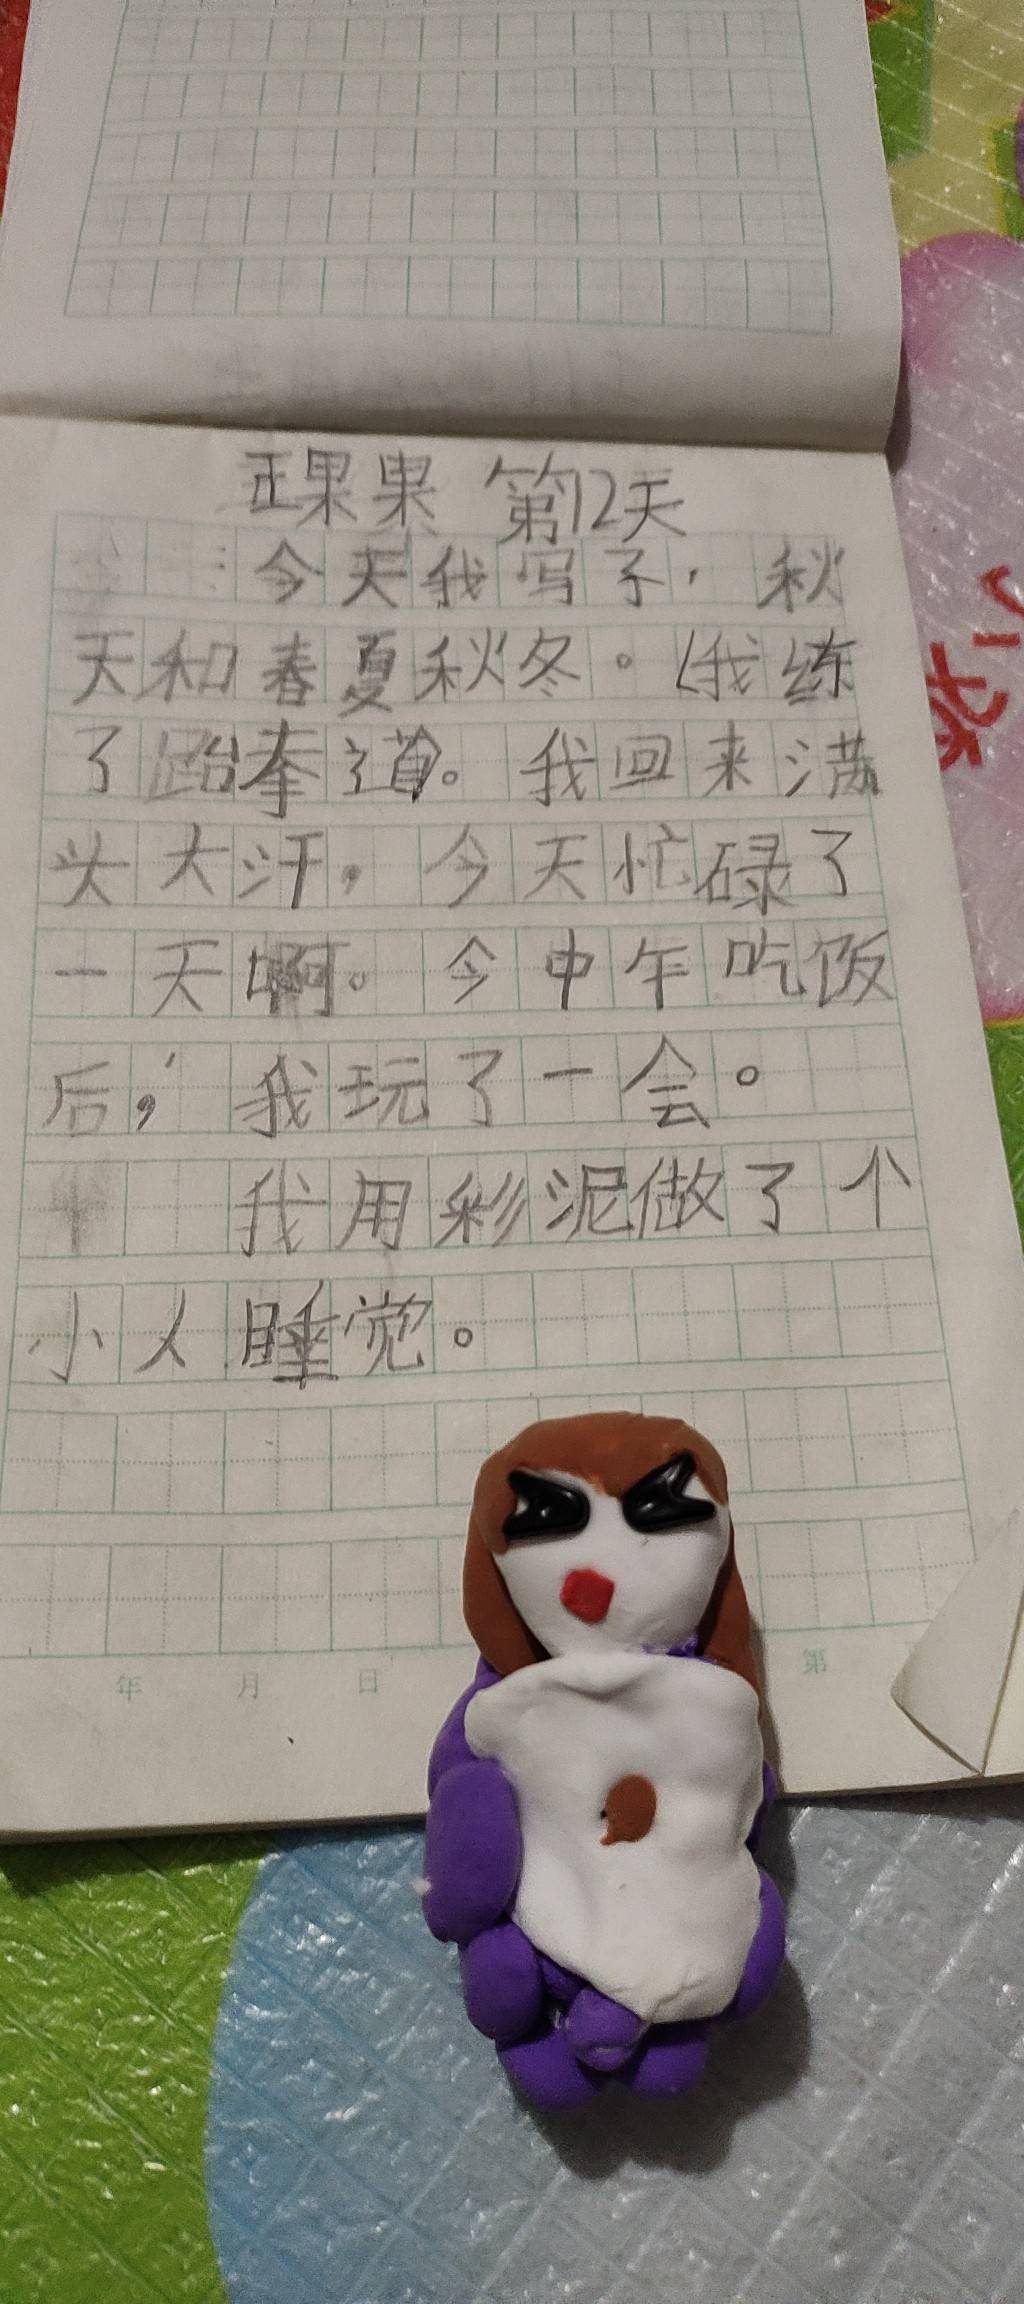 果果 第12天
今天我写了，秋
天和春夏秋冬。我练
了跆拳道。我回来满
头大汗，今天忙碌了
一天啊。今中午吃饭
后，我玩了一会。
我用彩泥做了个
小人睡觉。
年 月 日 第